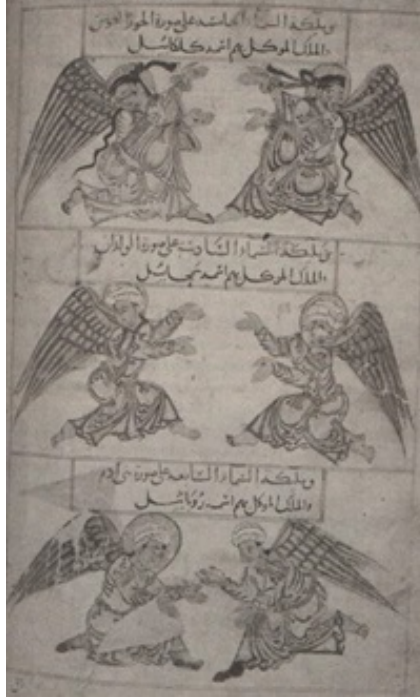 وملائكة السماء الخامسة على صورة الحور العين
والملك الموكل بهم اسمه كلكائيل
وملائكة السماء السادسة على صورة الولدان
والملك الموكل بهم اسمه سمحائيل
وملائكة السماء السابعة على صورة بني آدم
والملك الموكل بهم اسمه روبائيل